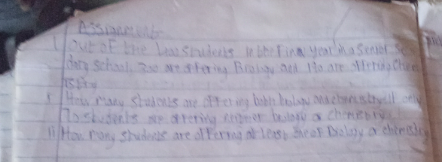 Assignment
1 Out of the students in the final year in a Senior Se
dary school, 200 are offering Biology and are offering Chem
istry
i How many students are offering both biology and chemistry if only
75 students are offering biology or chemistry
ii How many students are offering at least one of Biology or chemistry